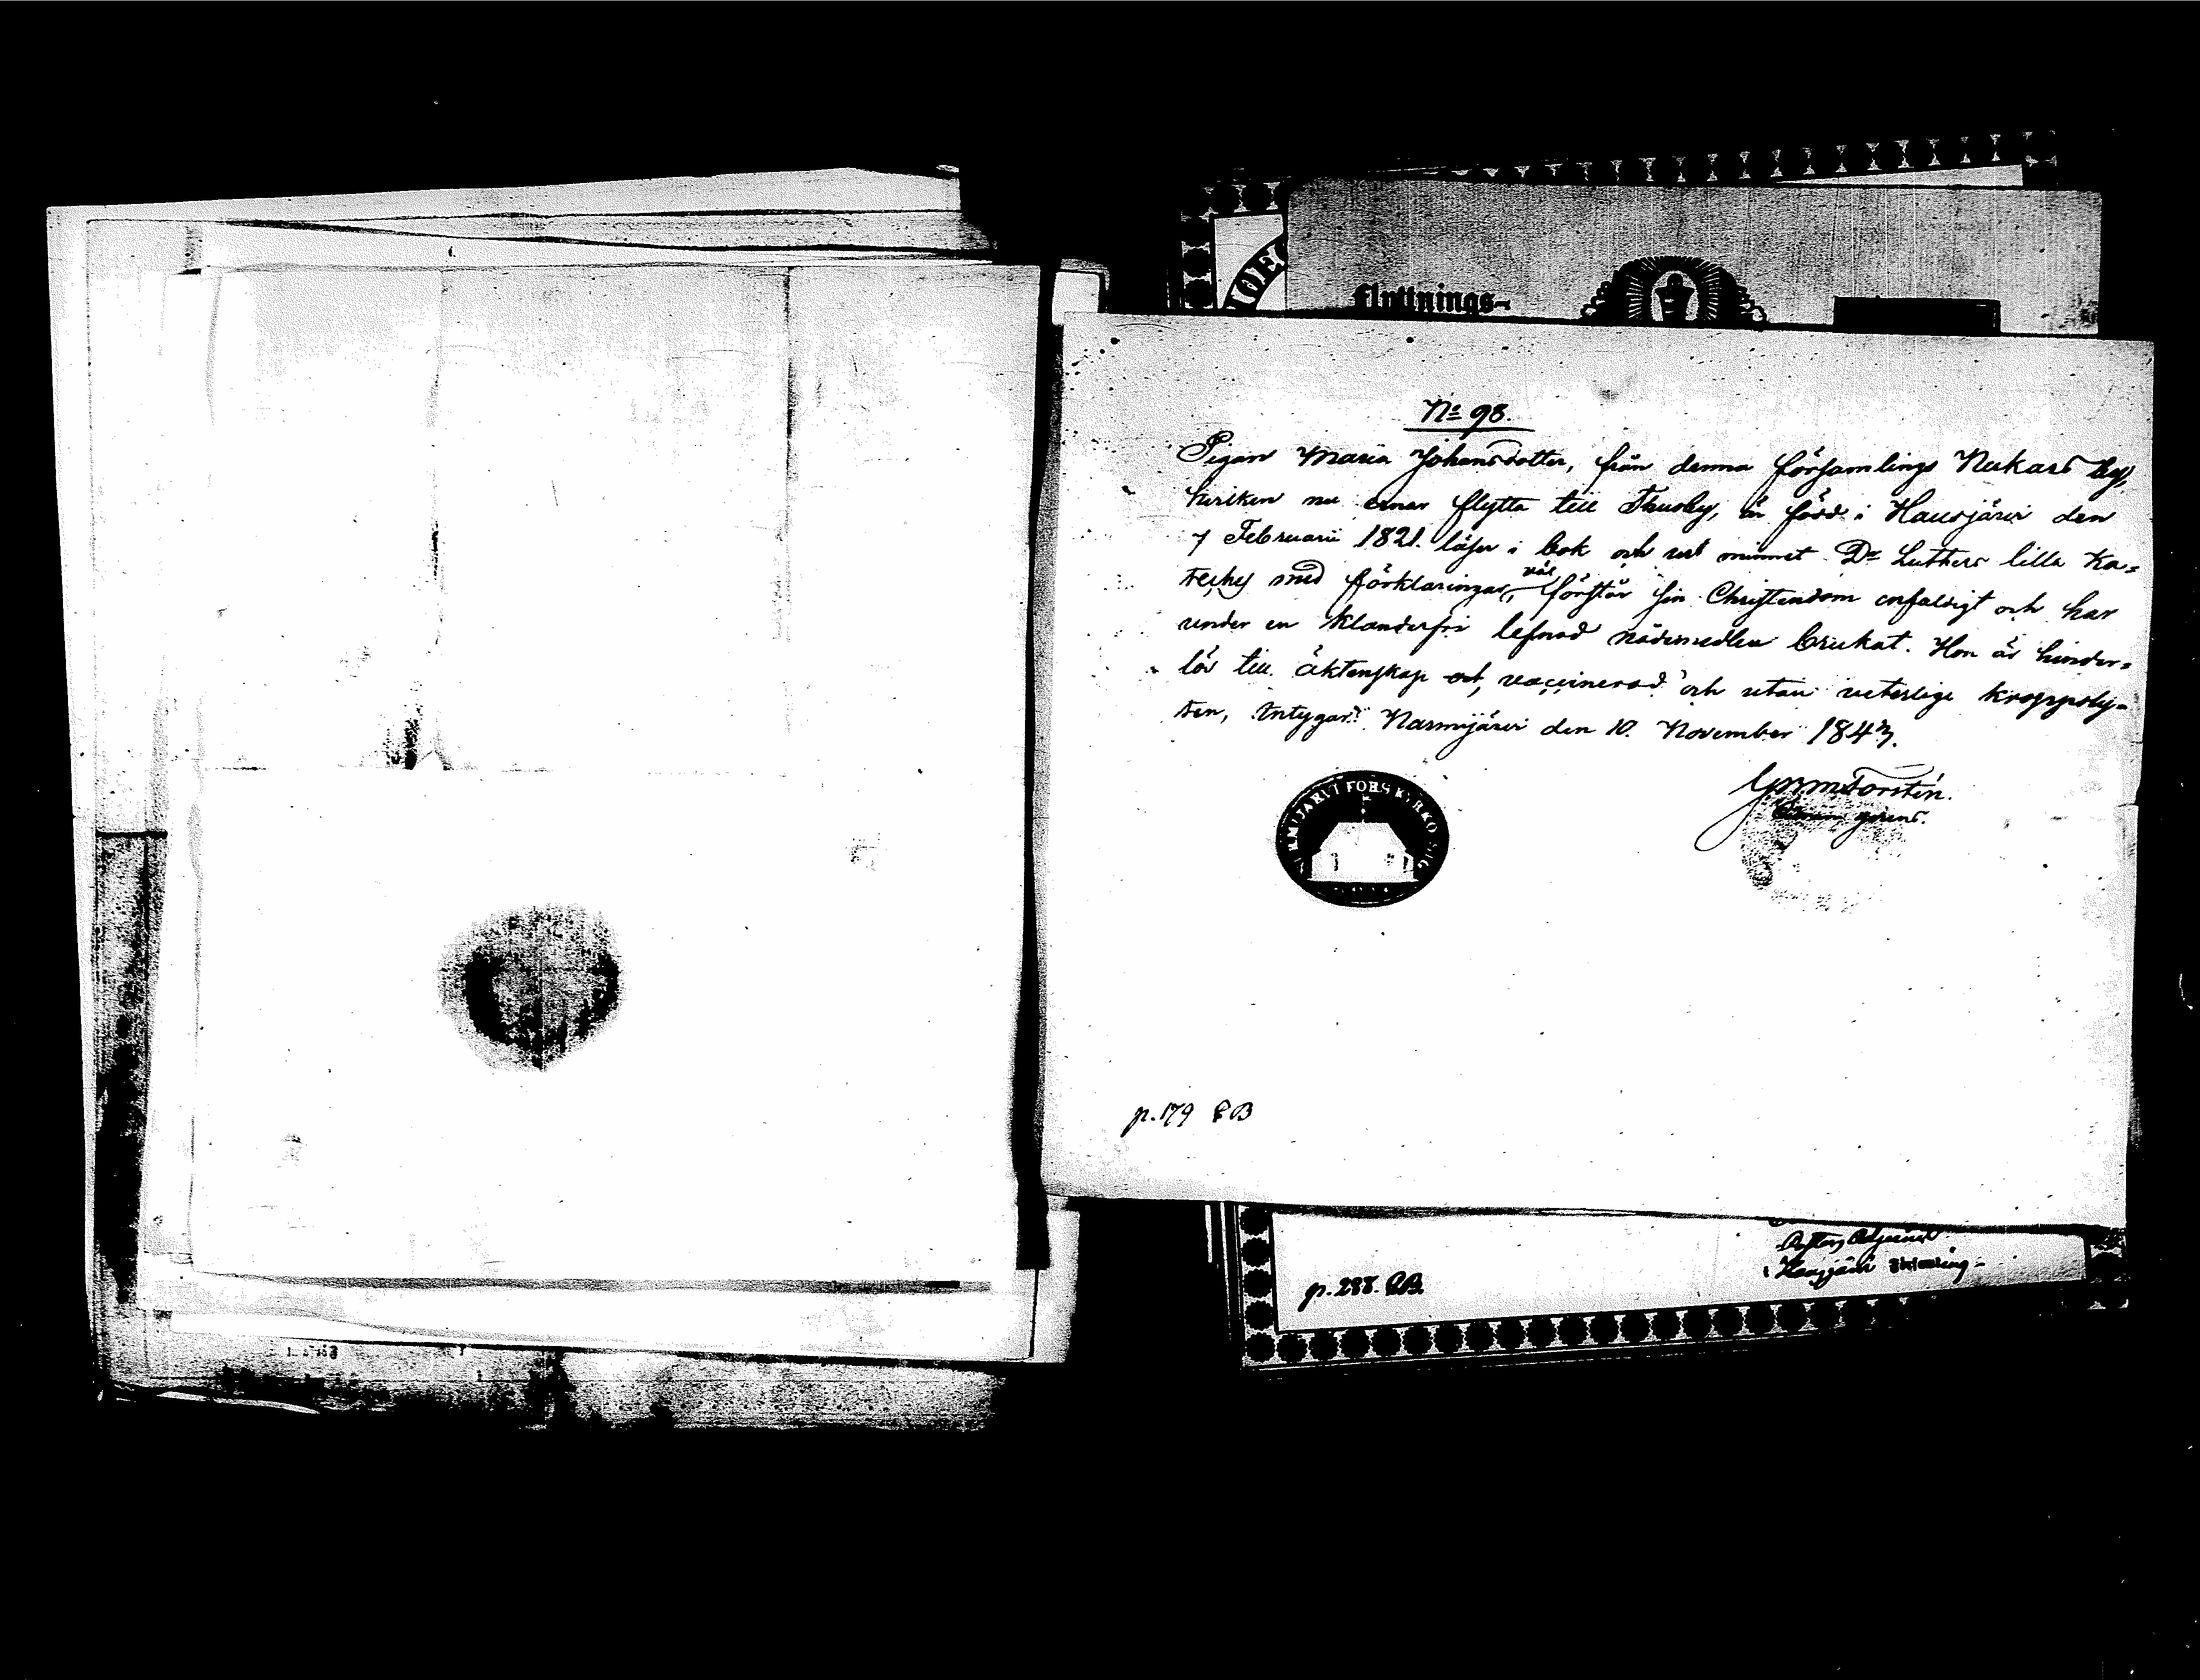 flyttnings-
Nº 98.
Pigan Maria Johansdotter, från denna församlings Nukars by,
hvilken nu ernar flytta till Thusby, är född i Hausjärvi den
7 Februarii 1821. läser i bok och ut minnet Dr Luthers lilla Ka=
teches med förklaringar, väl förstår sin Christendom enfaldigt och har
under en klanderfri lefnad nådemedlen brukat. Hon är hinder=
lös till äktenskap och vaccinerad och utan veterlige kroppsly=
ten, intygar. Nurmijärvi den 10. November 1843.
NURMIJARVI FÖRS KYRKO SIG
p. 179 CB
p. 288. CB.
Hausjärvi